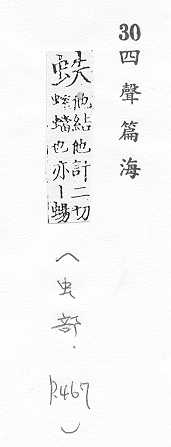 30
四聲篇海
蛈
他結他計二切
螲蟷也亦丨蜴
(虫部.
P.467)